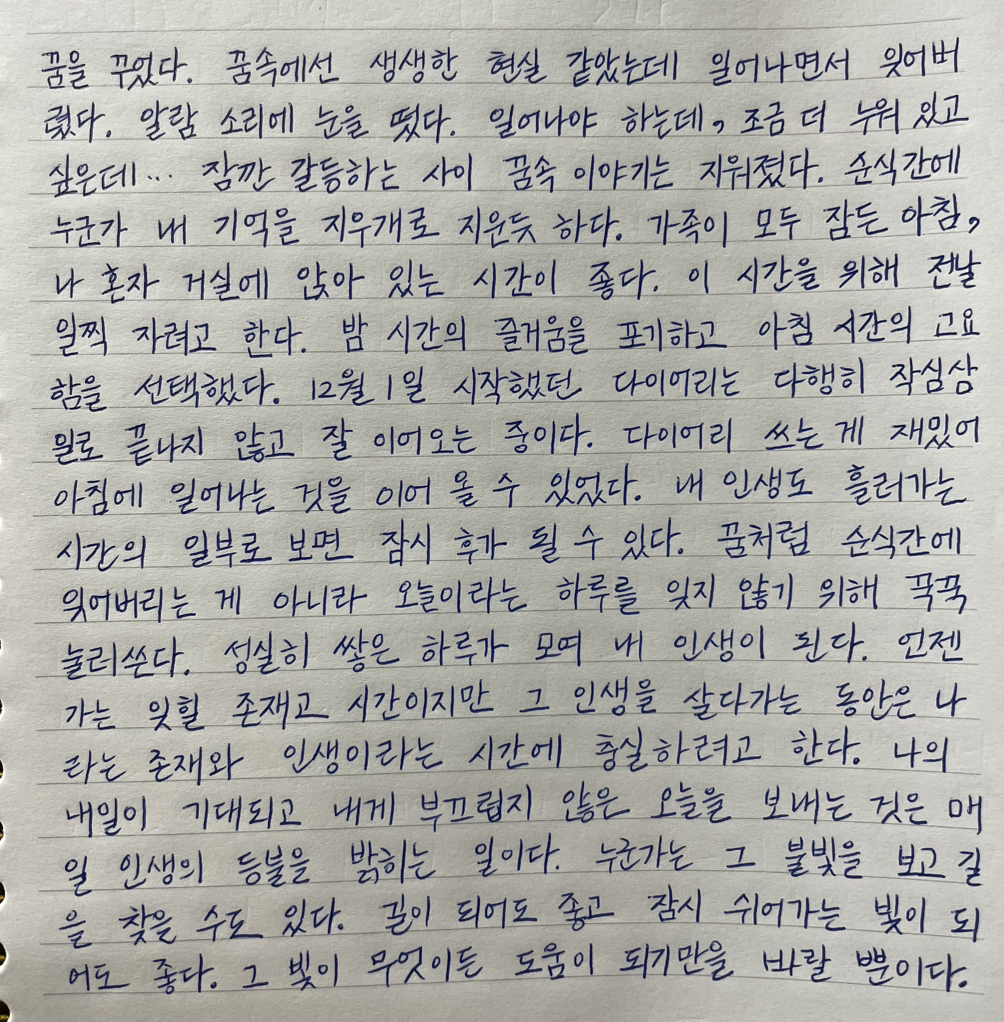 꿈을 꾸었다. 꿈속에선 생생한 현실 같았는데 일어나면서 잊어버
렸다. 알람 소리에 눈을 떴다. 일어나야 하는데, 조금 더 누워 있고
싶은데... 잠깐 갈등하는 사이 꿈속 이야기는 지워졌다. 순식간에
누군가 내 기억을 지우개로 지운듯 하다. 가족이 모두 잠든 아침,
나 혼자 거실에 앉아 있는 시간이 좋다. 이 시간을 위해 전날
일찍 자려고 한다. 밤 시간의 즐거움을 포기하고 아침 시간의 고요
함을 선택했다. 12월 1일 시작했던 다이어리는 다행히 작심삼
일로 끝나지 않고 잘 이어오는 중이다. 다이어리 쓰는 게 재밌어
아침에 일어나는 것을 이어 올 수 있었다. 내 인생도 흘러가는
시간의 일부로 보면 잠시 후가 될 수 있다. 꿈처럼 순식간에
잊어버리는 게 아니라 오늘이라는 하루를 잊지 않기 위해 꾹꾹
눌러쓴다. 성실히 쌓은 하루가 모여 내 인생이 된다. 언젠
가는 잊힐 존재고 시간이지만 그 인생을 살다가는 동안은 나
라는 존재와 인생이라는 시간에 충실하려고 한다. 나의
내일이 기대되고 내게 부끄럽지 않은 오늘을 보내는 것은 매
일 인생의 등불을 밝히는 일이다. 누군가는 그 불빛을 보고 길
을 찾을 수도 있다. 길이 되어도 좋고 잠시 쉬어가는 빛이 되
어도 좋다. 그 빛이 무엇이든 도움이 되기만을 바랄 뿐이다.